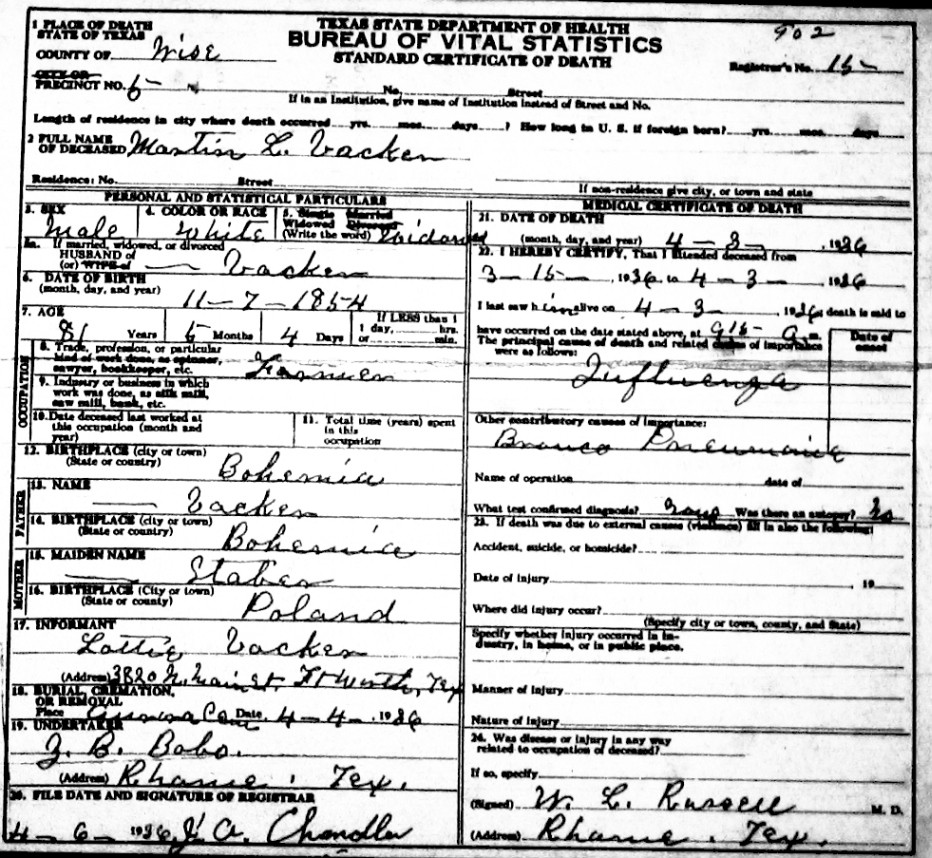 TEXAS STATE DEPARTMENT OF HEALTH
902
BUREAU OF VITAL STATISTICS
STANDARD CERTIFICATE OF DEATH
1 PLACE OF DEATH
STATE OF TEXAS
COUNTY OF Wise
Registrar's No. 15-
CITY OR
PRECINCT NO. No. Street
If in an Institution, give name of Institution instead of Street and No.
Length of residence in city where death occurred yrs. mos. days ? How long in U. S. if foreign born? yrs. mos. days
2 FULL NAME
OF DECEASED Martin L. Vacker
Residence: No. Street
If non-residence give city, or town and state
PERSONAL AND STATISTICAL PARTICULARS
3. SEX
Male
4. COLOR OR RACE
White
5. Single Married
Widowed Divorced
(Write the word) Widowed
5a. If married, widowed, or divorced
HUSBAND of
(or) WIFE of — Vacker
6. DATE OF BIRTH
(month, day, and year) 11-7-1854
7. AGE
81 Years 5 Months 4 Days
If LESS than 1
1 day, hrs.
or min.
OCCUPATION
8. Trade, profession, or particular
kind of work done, as spinner,
sawyer, bookkeeper, etc. Farmer
9. Industry or business in which
work was done, as silk mill,
saw mill, bank, etc.
10. Date deceased last worked at
this occupation (month and
year)
11. Total time (years) spent
in this
occupation
12. BIRTHPLACE (city or town)
(State or country) Bohemia
FATHER
13. NAME
— Vacker
14. BIRTHPLACE (city or town)
(State or country) Bohemia
MOTHER
15. MAIDEN NAME
— Staber
16. BIRTHPLACE (City or town)
(State or county) Poland
17. INFORMANT
Lottie Vacker
(Address) 3820 N. Main St. Ft Worth, Tex
18. BURIAL, CREMATION,
OR REMOVAL
Place Aurora Cem Date 4-4-1936
19. UNDERTAKER
Z. B. Bobo.
(Address) Rhome, Tex.
20. FILE DATE AND SIGNATURE OF REGISTRAR
4-6-1936 J. A. Chandler
MEDICAL CERTIFICATE OF DEATH
21. DATE OF DEATH
(month, day, and year) 4-3-, 1936
22. I HEREBY CERTIFY, That I attended deceased from
3-15-, 1936 to 4-3-, 1936
I last saw him alive on 4-3-, 1936; death is said to
have occurred on the date stated above, at 915- a.m.
The principal cause of death and related causes of importance
were as follows:
Date of
onset
Influenza
Other contributory causes of importance:
Bronco Pneumonia
Name of operation date of
What test confirmed diagnosis? Was there an autopsy? No
23. If death was due to external causes (violence) fill in also the following:
Accident, suicide, or homicide?
Date of injury , 19
Where did injury occur?
(Specify city or town, county, and State)
Specify whether injury occurred in in-
dustry, in home, or in public place.
Manner of injury
Nature of injury
24. Was disease or injury in any way
related to occupation of deceased?
If so, specify
(Signed) W. L. Russell M. D.
(Address) Rhome, Tex.